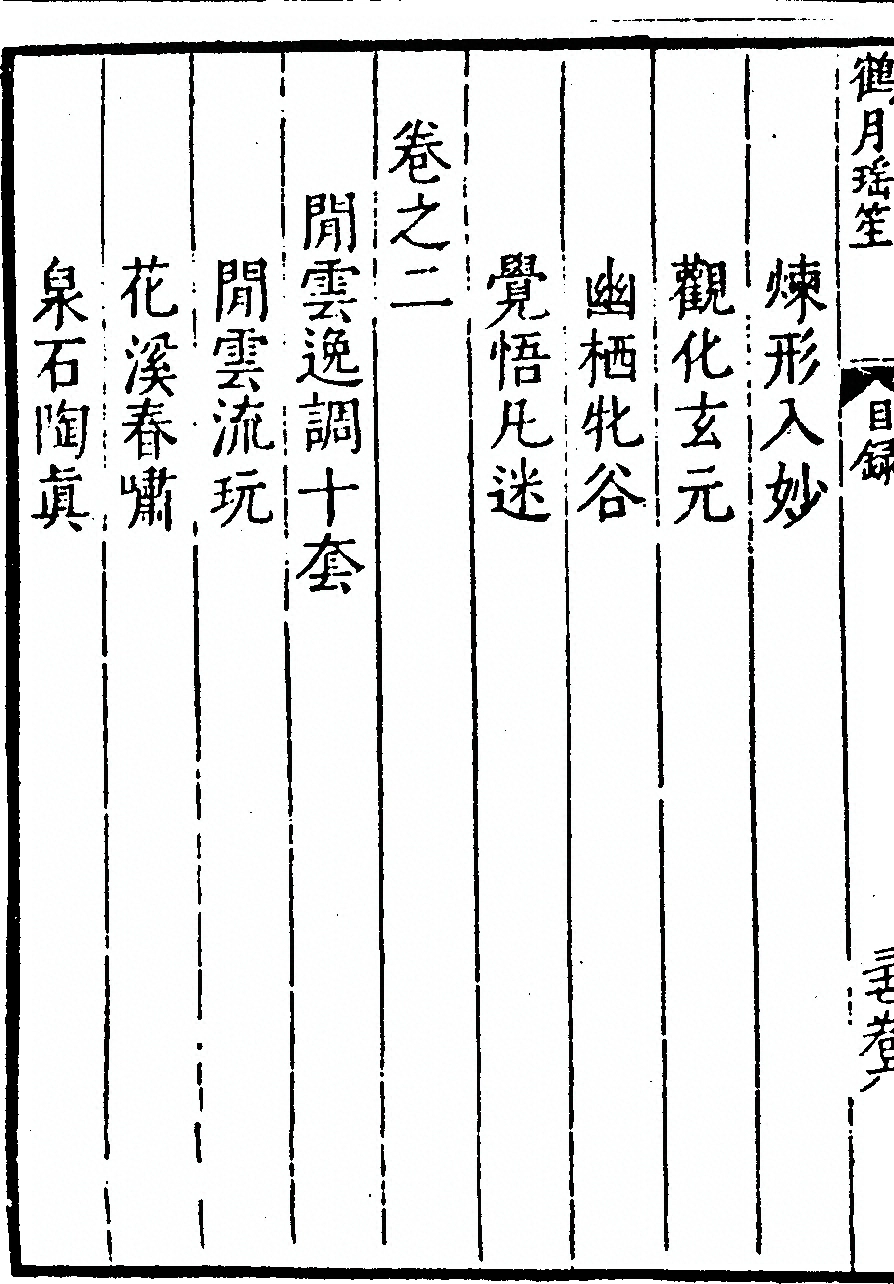 鶴月瑶笙
目録
煉形入妙
觀化玄元
幽栖牝谷
覺悟凡迷
卷之二
閒雲逸調十套
閒雲流玩
花溪春嘯
泉石陶眞